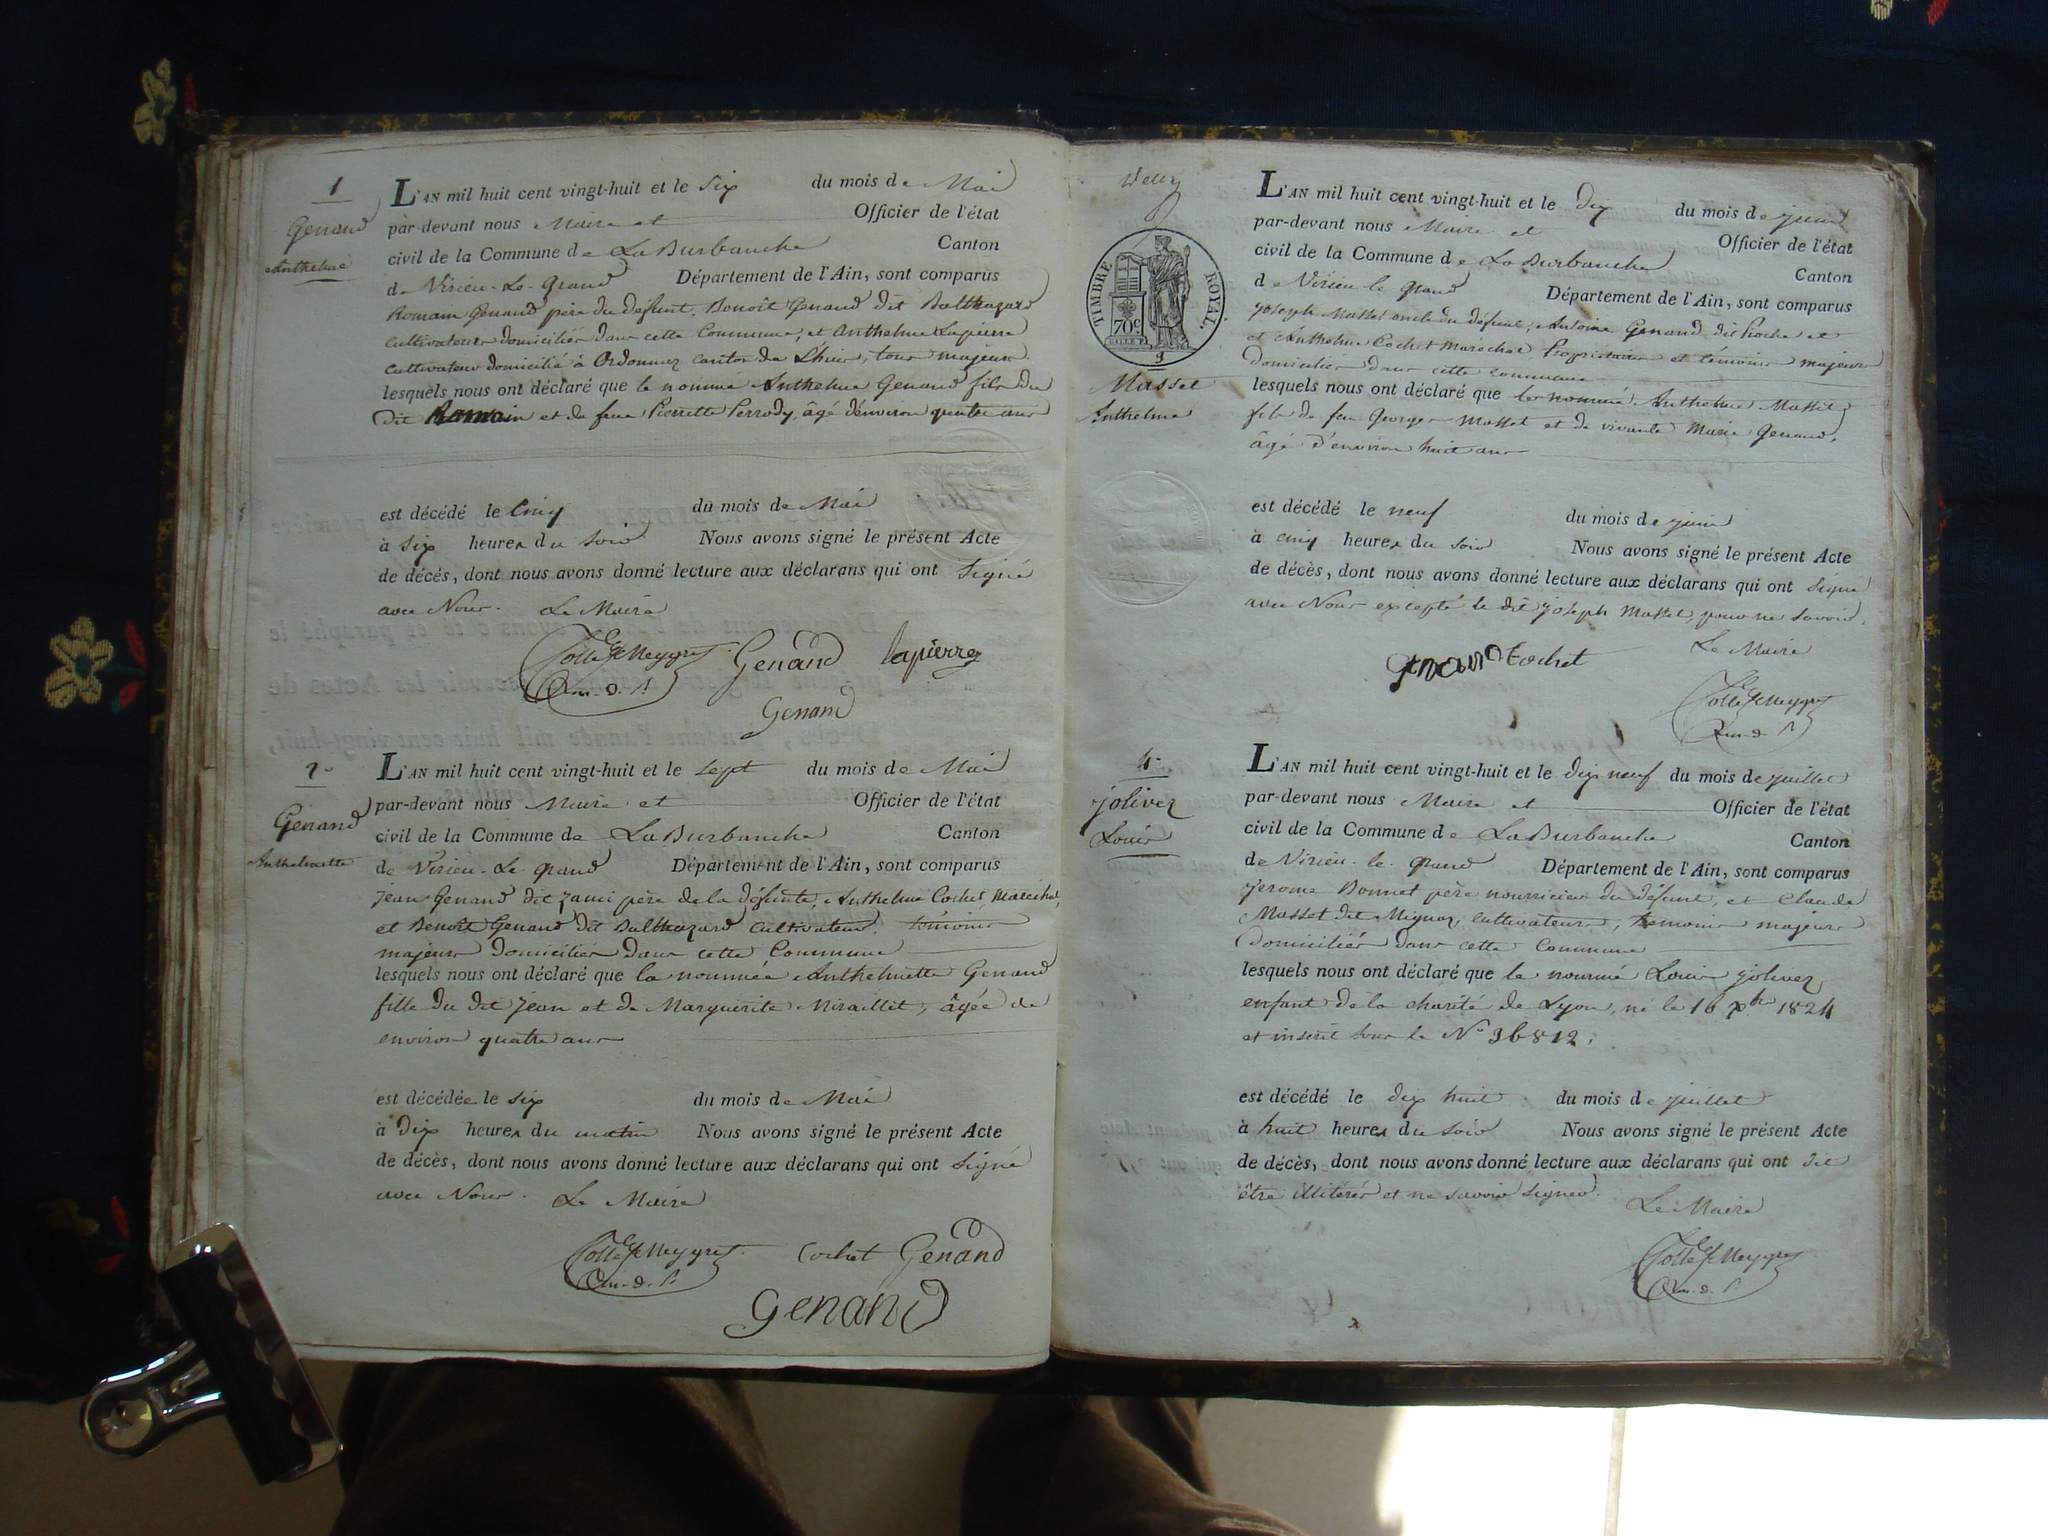 1
Genand
Anthelme
L'AN mil huit cent vingt-huit et le Six du mois de Mai
par-devant nous Maire et Officier de l'état
civil de la Commune de La Burbanche Canton
de Virieu-Le-grand Département de l'Ain, sont comparus
Romain Genand père du défunt, Benoît Genand dit Balthazard
cultivateurs domiciliés dans cette Commune, et Anthelme Lapierre
cultivateur domicilié à Ordonnaz canton de Lhuis, tous majeurs
lesquels nous ont déclaré que le nommé Anthelme Genand fils du
dit Romain et de feue Pierrette Perrody, âgé d'environ quatre ans
est décédé le Cinq du mois de Mai
à Six heures du soir Nous avons signé le présent Acte
de décés, dont nous avons donné lecture aux déclarans qui ont Signé
avec Nous. Le Maire
Genand lapierre
Genand
2
Genand
Anthelmette
L'AN mil huit cent vingt-huit et le Sept du mois de Mai
par-devant nous Maire et Officier de l'état
civil de la Commune de La Burbanche Canton
de Virieu-Le-grand Département de l'Ain, sont comparus
Jean Genand dit père de la défunte, Anthelme Cochet Maréchal,
et Benoît Genand dit Balthazard Cultivateur, témoins
majeurs domiciliés dans cette Commune
lesquels nous ont déclaré que la nommée Anthelmette Genand
fille du dit Jean et de Marguerite Miraillet, âgée de
environ quatre ans
est décédée le Six du mois de Mai
à Dix heures du matin Nous avons signé le présent Acte
de décès, dont nous avons donné lecture aux déclarans qui ont Signé
avec Nous. Le Maire
Cochet Genand
Genand
TIMBRE ROYAL.
70c
Masset
Anthelme
L'AN mil huit cent vingt-huit et le Dix du mois de juin
par-devant nous Maire et Officier de l'état
civil de la Commune de La Burbanche Canton
de Virieu-le-grand Département de l'Ain, sont comparus
joseph Masset oncle du défunt, Antoine Genand dit Pioche et
et Anthelme Cochet Maréchal, Propriétaires et témoins majeurs
domiciliés dans cette commune
lesquels nous ont déclaré que le nommé Anthelme Masset
fils de feu George Masset et de vivante Marie Genand,
âgé d'environ huit ans
est décédé le neuf du mois de juin
à cinq heures du soir Nous avons signé le présent Acte
de décès, dont nous avons donné lecture aux déclarans qui ont Signé
avec Nous excepté le dit joseph Masset, pour ne savoir.
Genand Cochet Le Maire
4.
jolivez
Louis
L'AN mil huit cent vingt-huit et le dix neuf du mois de juillet
par-devant nous Maire et Officier de l'état
civil de la Commune de La Burbanche Canton
de Virieu-le-grand Département de l'Ain, sont comparus
jerome Bonnet père nourricier du défunt, et Claude
Masset dit Mignoz, cultivateurs, témoins majeurs
domiciliés dans cette Commune
lesquels nous ont déclaré que le nommé Louis jolivez
enfant de la charité de Lyon, né le 16 Xbre 1824
et inscrit sous le N° 36812,
est décédé le dix huit du mois de juillet
à huit heures du soir Nous avons signé le présent Acte
de décès, dont nous avons donné lecture aux déclarans qui ont dit
être illitérés et ne savoir signer.
Le Maire